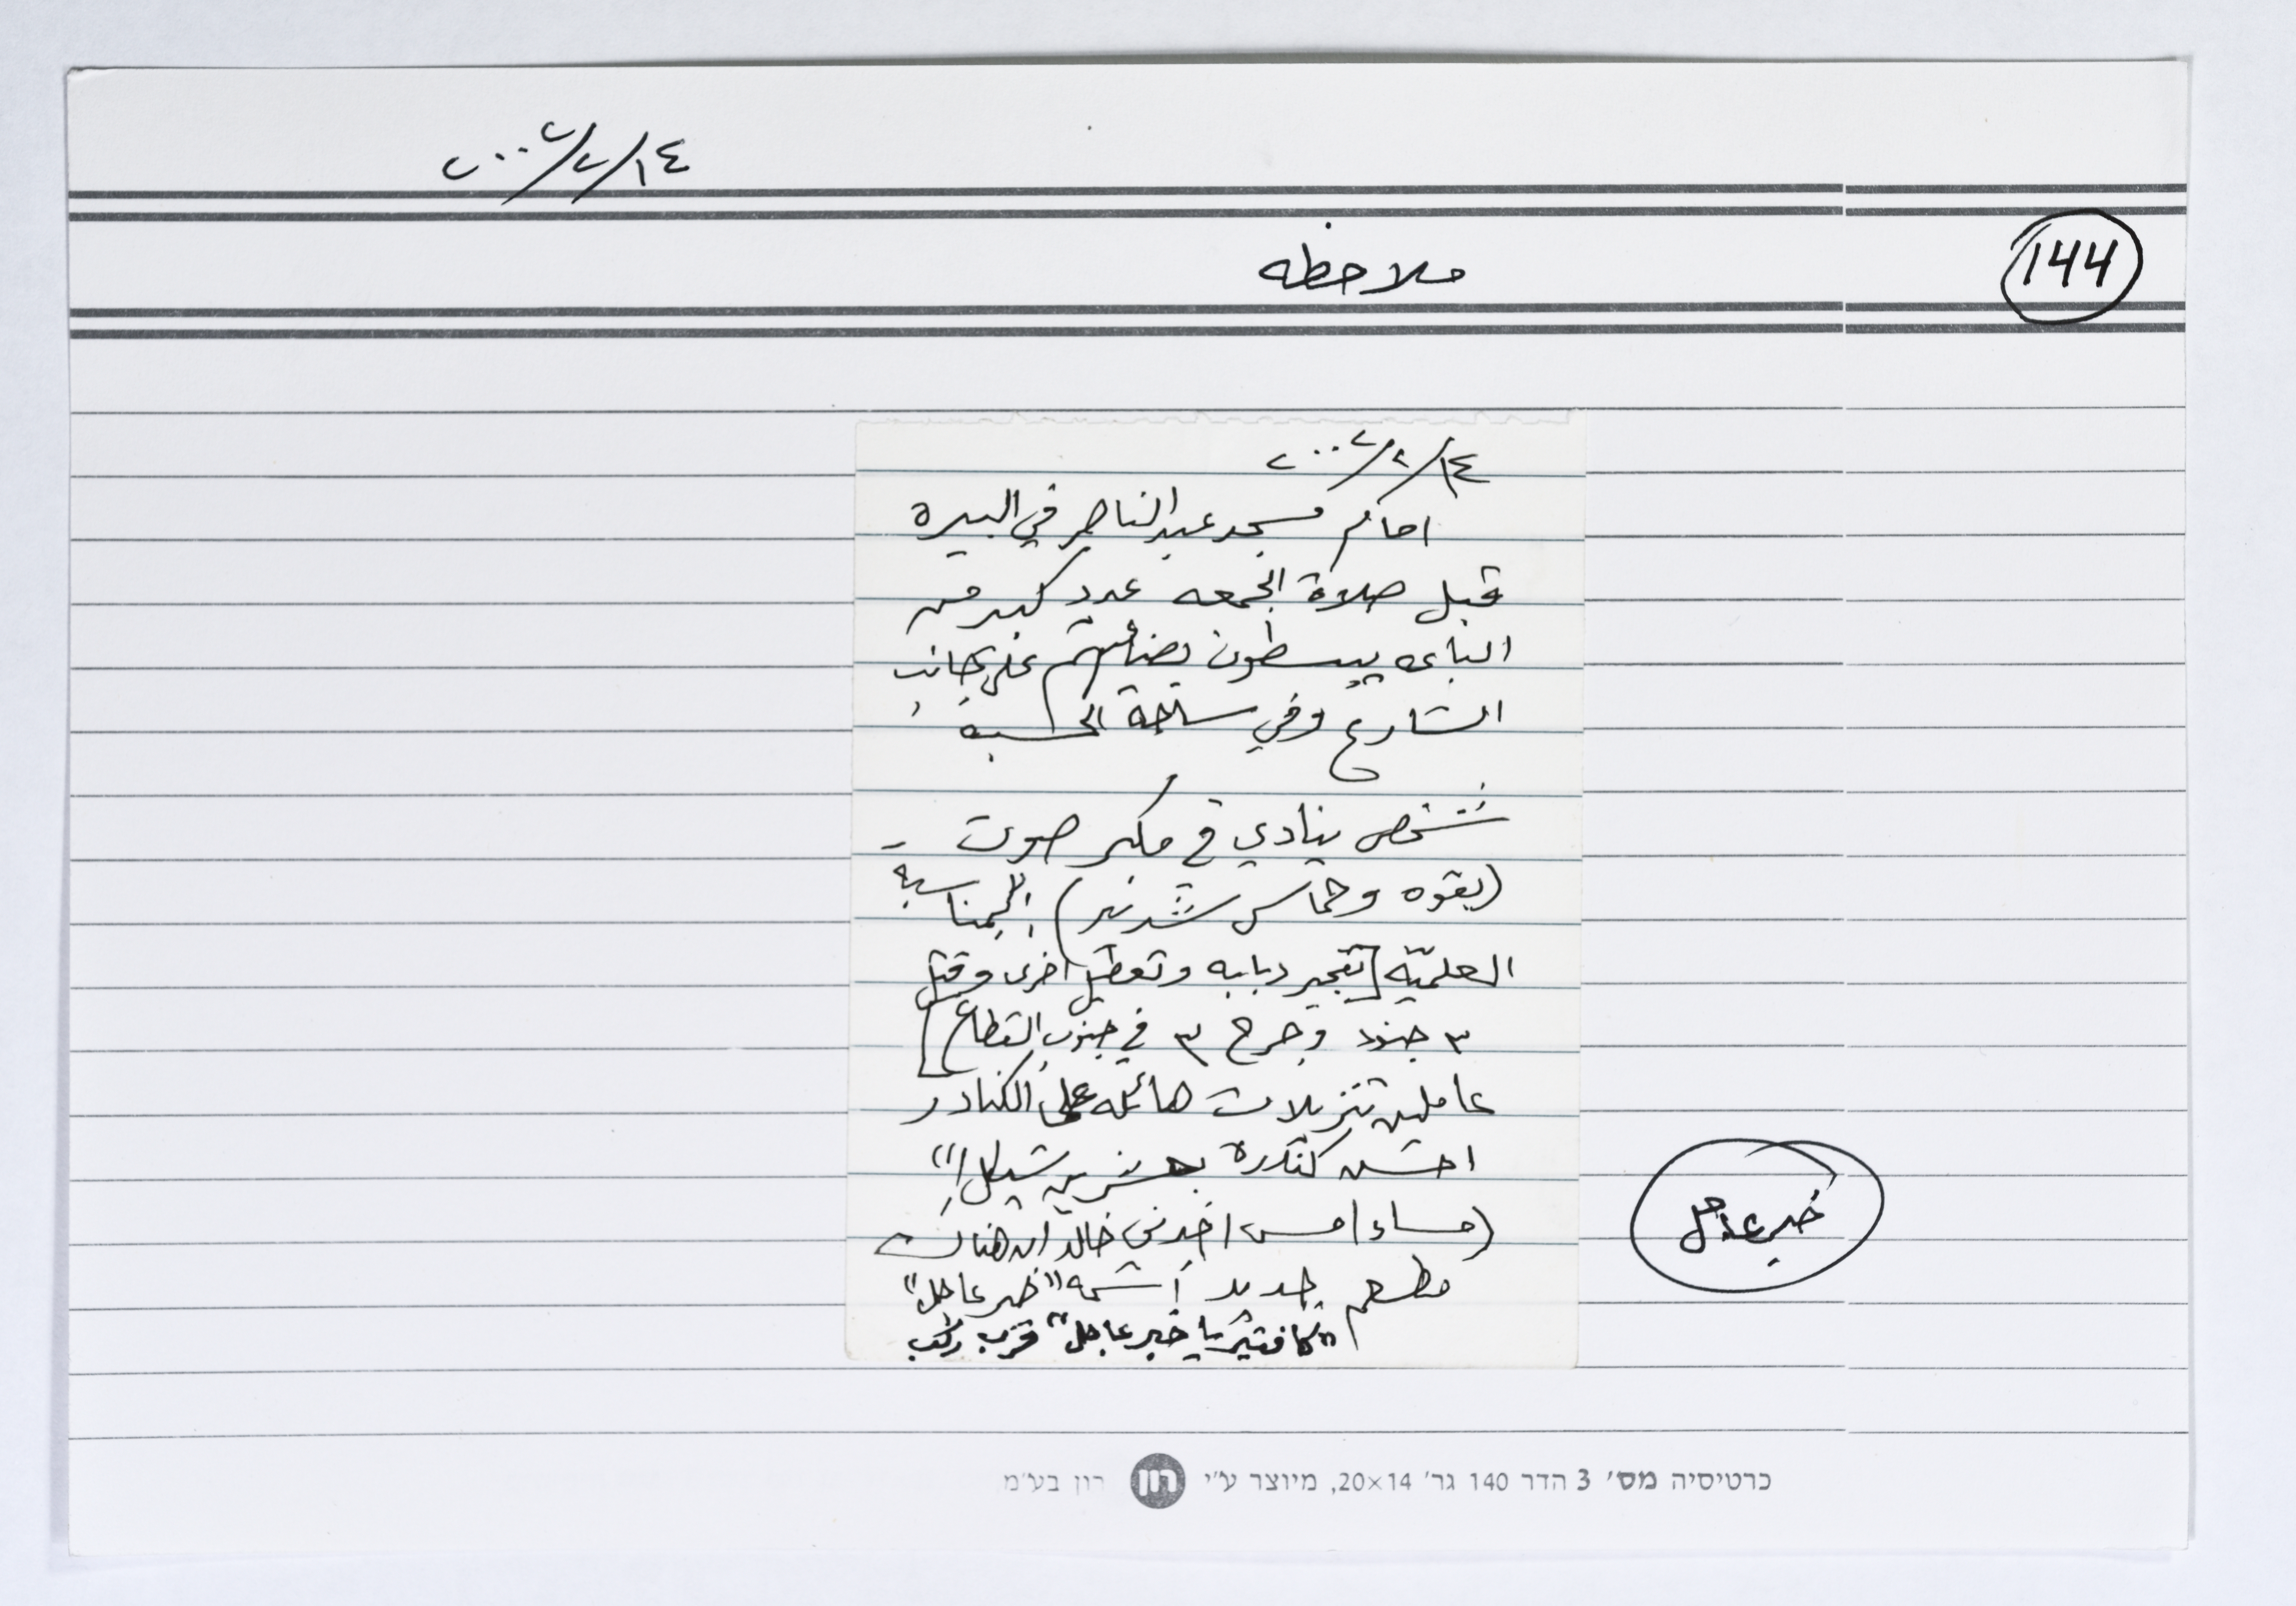 ٢٠٠٢/٢/١٤
144
ملاحظه
٢٠٠٢/٢/١٤
امام مسجد عبد الناصر في البيره
قبل صلاة الجمعه عدد كبير من
الباعه يبسطون بضائعهم على جانب
الشارع وفي ساحة الحسبة
شخص ينادي في مكبر صوت -
(بقوه وحماس شديد) " بمناسبة
العلميّه [تفجير دبابه وتعطيل اخرى وقتل
٣ جنود وجرح ٣ في جنوب القطاع]
عاملين تنزيلات هائله على الكنادر
احسن كندرة بعشرين شيكل !"
(مساء امس اخبرني خالد ان هناك
مطعم جديد أسمه "خبر عاجل"
"كافتيريا خبر عاجل" قرب ركب
خبر عاجل
כרטיסיה מס׳ 3 הדר 140 גר׳ 20×14, מיוצר ע״י רון רון בע״מ